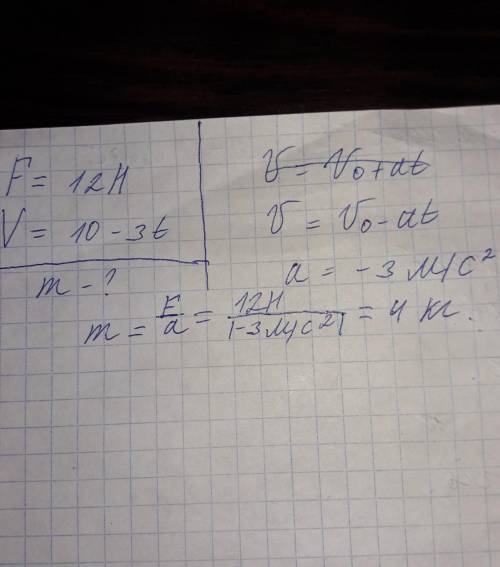 F = 12 Н
V = 10 - 3t
m - ?
v = v₀ + at
v = v₀ - at
a = -3 м/с²
m = F/a = 12Н/|-3 м/с²| = 4 кг.